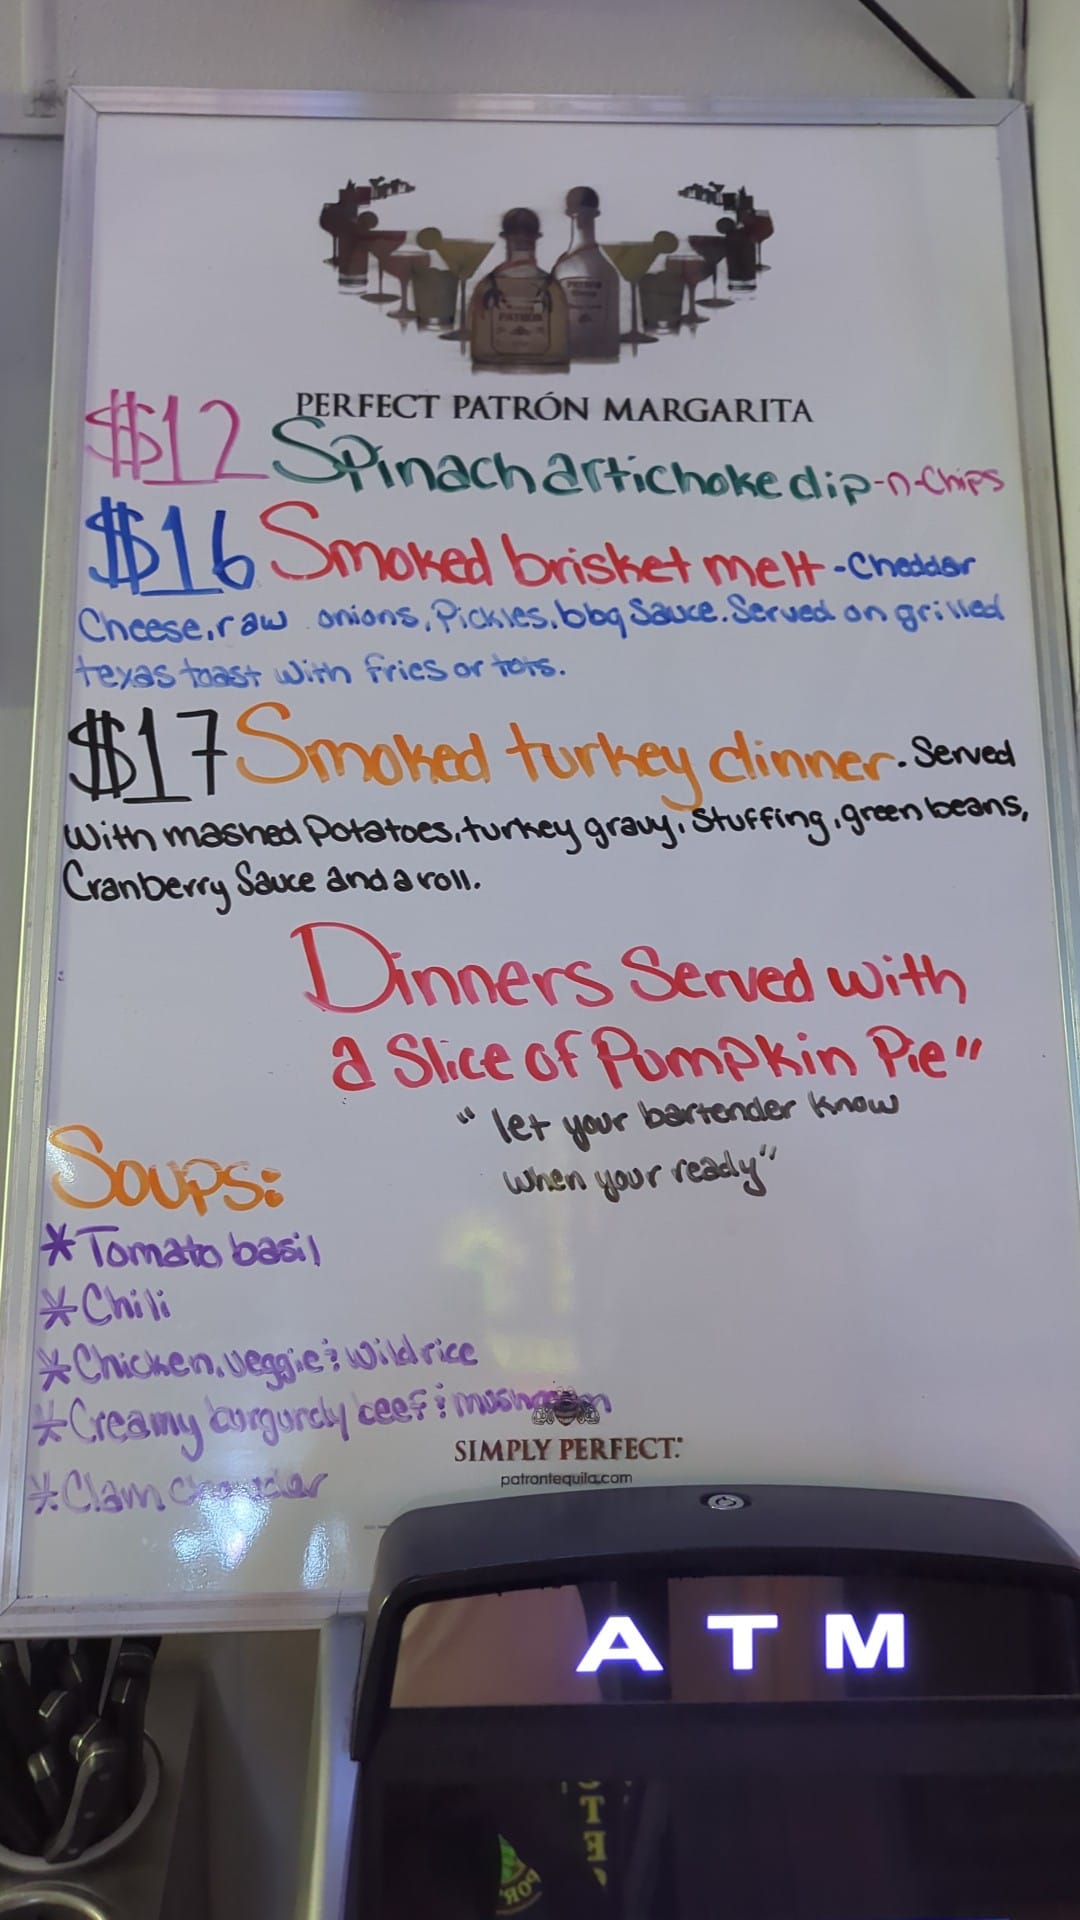 PATRÓN
PERFECT PATRÓN MARGARITA
$12 Spinach artichoke dip-n-Chips
$16 Smoked brisket melt - Cheddar
Cheese, raw onions, Pickles, bbq Sauce. Served on grilled
texas toast with fries or tots.
$17 Smoked turkey dinner. Served
With mashed Potatoes, turkey gravy, Stuffing, green beans,
Cranberry Sauce and a roll.
Dinners Served with
a Slice of Pumpkin Pie"
"let your bartender know
when your ready"
Soups:
*Tomato basil
*Chili
*Chicken, veggie & Wild rice
*Creamy burgundy beef & mushroom
*Clam chowder
SIMPLY PERFECT.
patrontequila.com
ATM